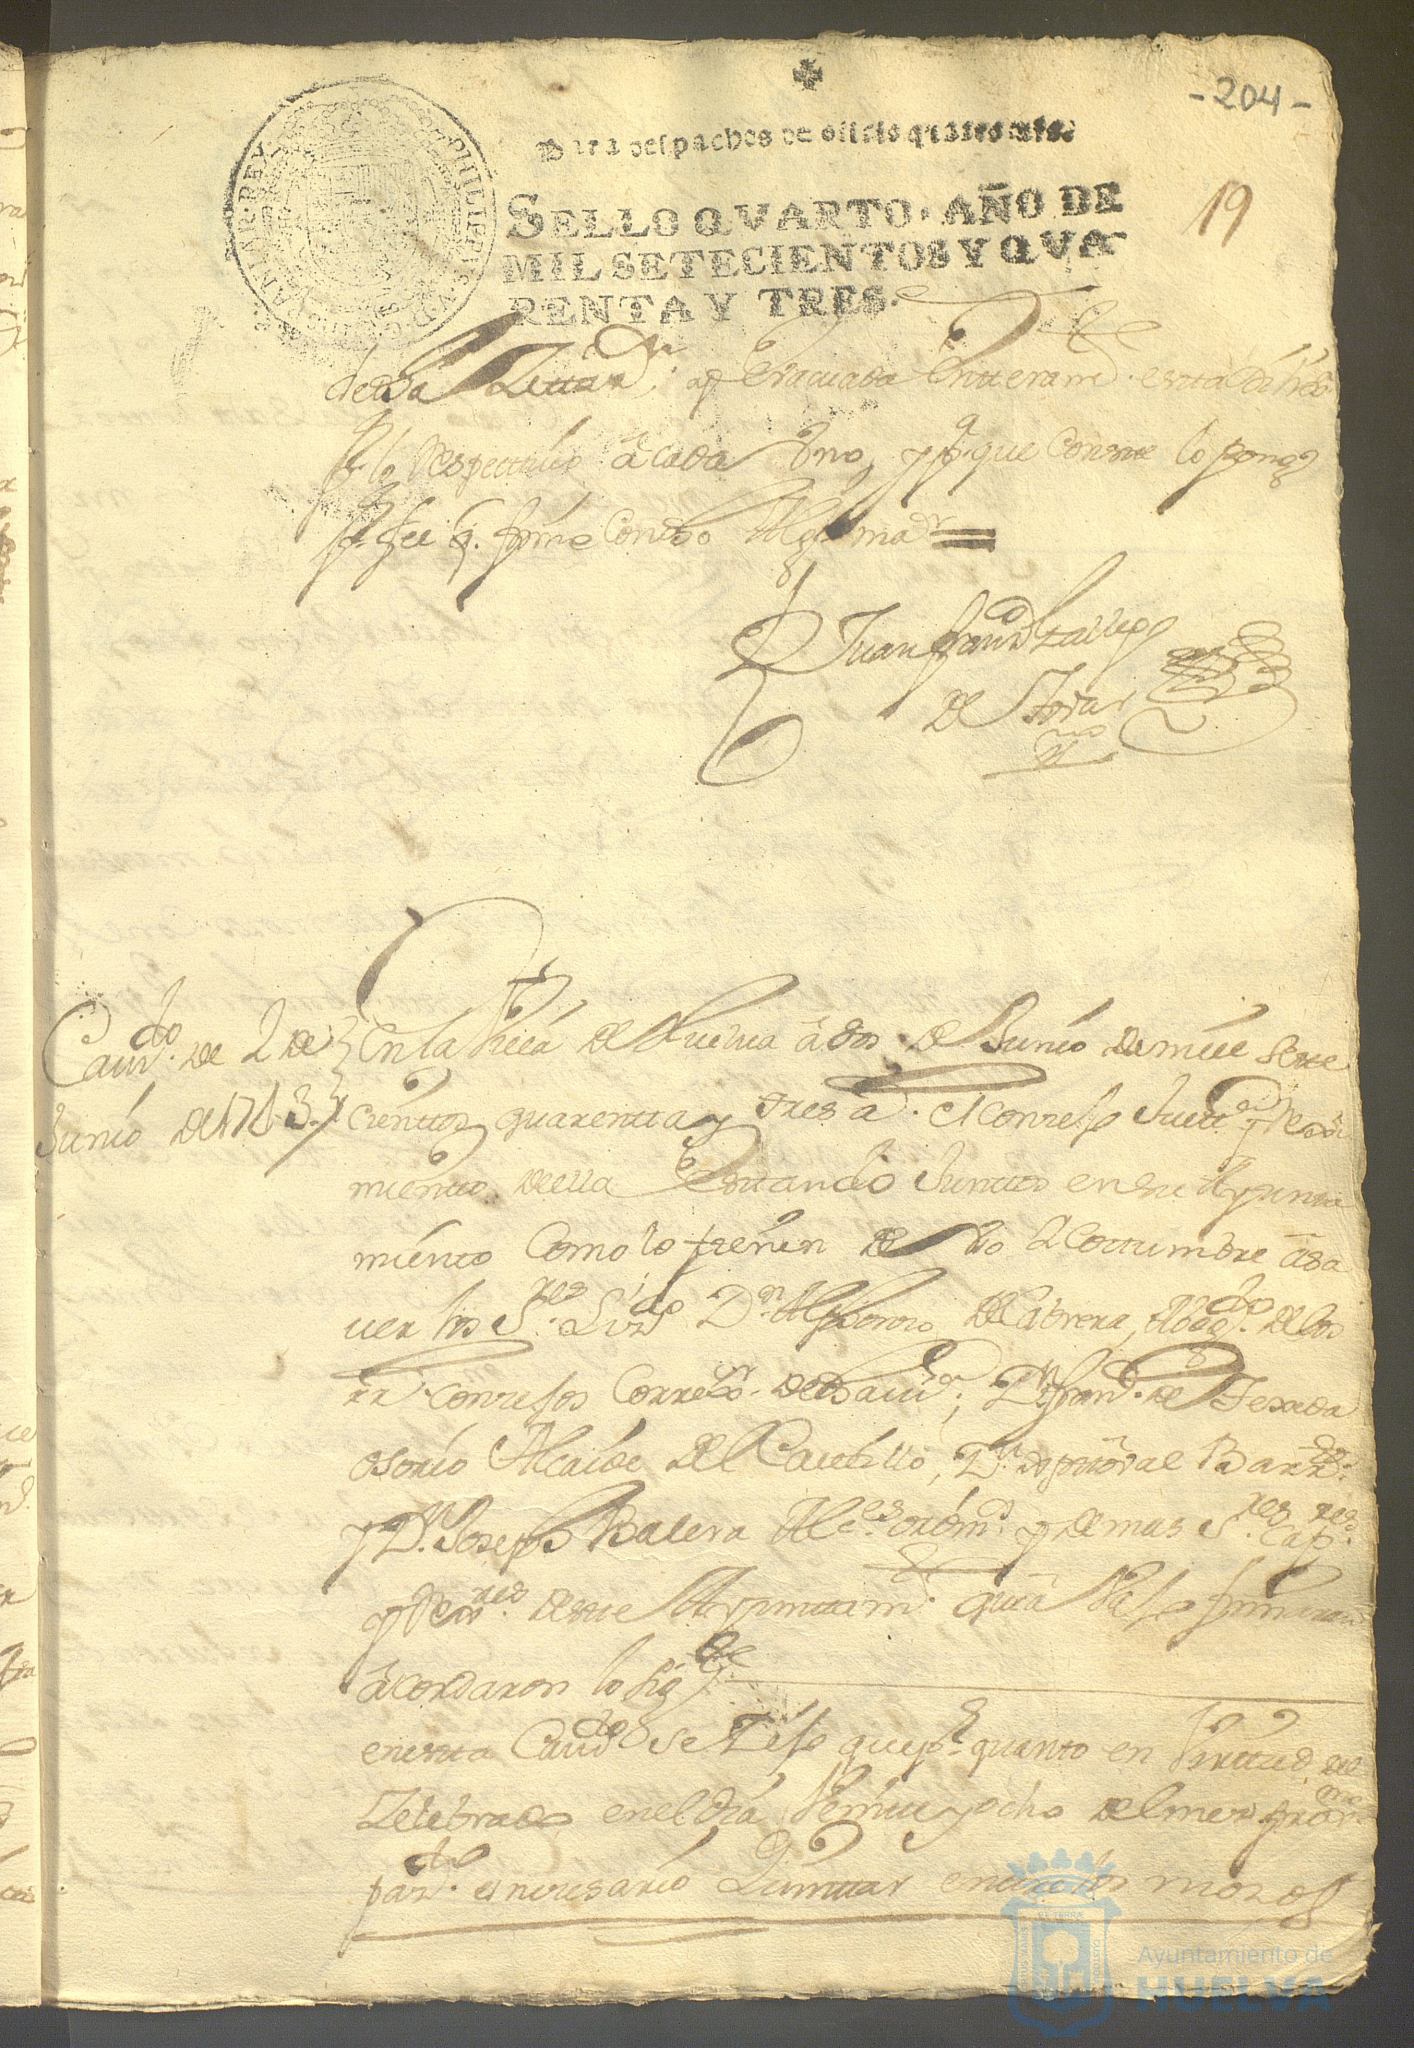 -204-
Para despachos de oficio quatro mrs.
19
SELLO QVARTO. AÑO DE
MIL SETECIENTOS Y QVA
RENTA Y TRES.
PHILIPPUS V D G HISPANIAR REX
lo respectivo â cada Vno, y pª que conste lo pongo
pr. fee q. firme con dho
Juan franco
de Tovar
Caudo. de 2 de
Junio de 1743
En la Villa de Huelva â dos de Junio de mill sete
cientos quarentta y tres a. el Conzejo Justa. y Rexi
miento della estando Junttos en su Ayunta
miento como lo tienen de Vso & Costumbre âsa
uer los Sres. Lizdo. Dn. Alphonso de Cabrera, Abogdo. de los
rr. Conzejos Corregor. de dha Va., Dn. franco. de Texada
osorio Alcaide del Castillo, Dn.
y Dn. Joseph Valera Alces. ordins. y demas Sres. Capres.
y Rexres. deste Ayunttam. que aVajo firmaran
âcordaron lo sigte.
en estte Caudo se Dijo que pr. quanto en Virttud del
Zelebrado en el dia Veintte y ocho del mes proxmo.
pasdo. es nesesario quinttar enttre los mozos
Ayuntamiento de
HUELVA